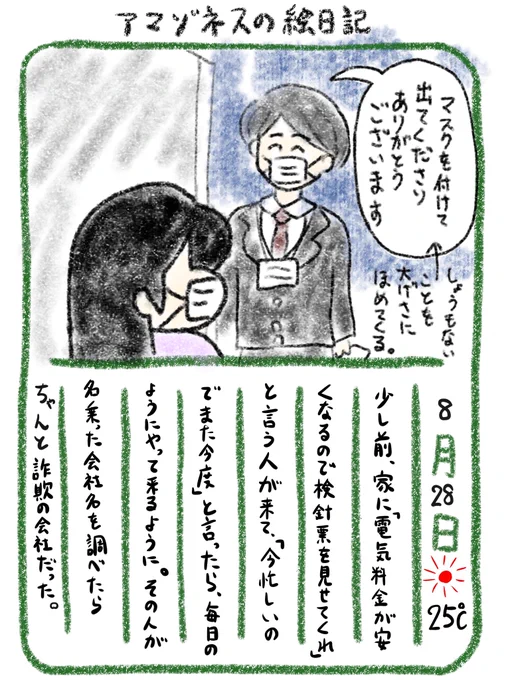 アマゾネスの絵日記
マスクを付けて
出てくださり
ありがとう
ございます
しょうもない
ことを
大げさに
ほめてくる。
8月28日
25℃
少し前、家に「電気料金が安
くなるので検針票を見せてくれ」
と言う人が来て、「今忙しいの
でまた今度」と言ったら、毎日の
ようにやって来るように。その人が
名乗った会社名を調べたら
ちゃんと詐欺の会社だった。